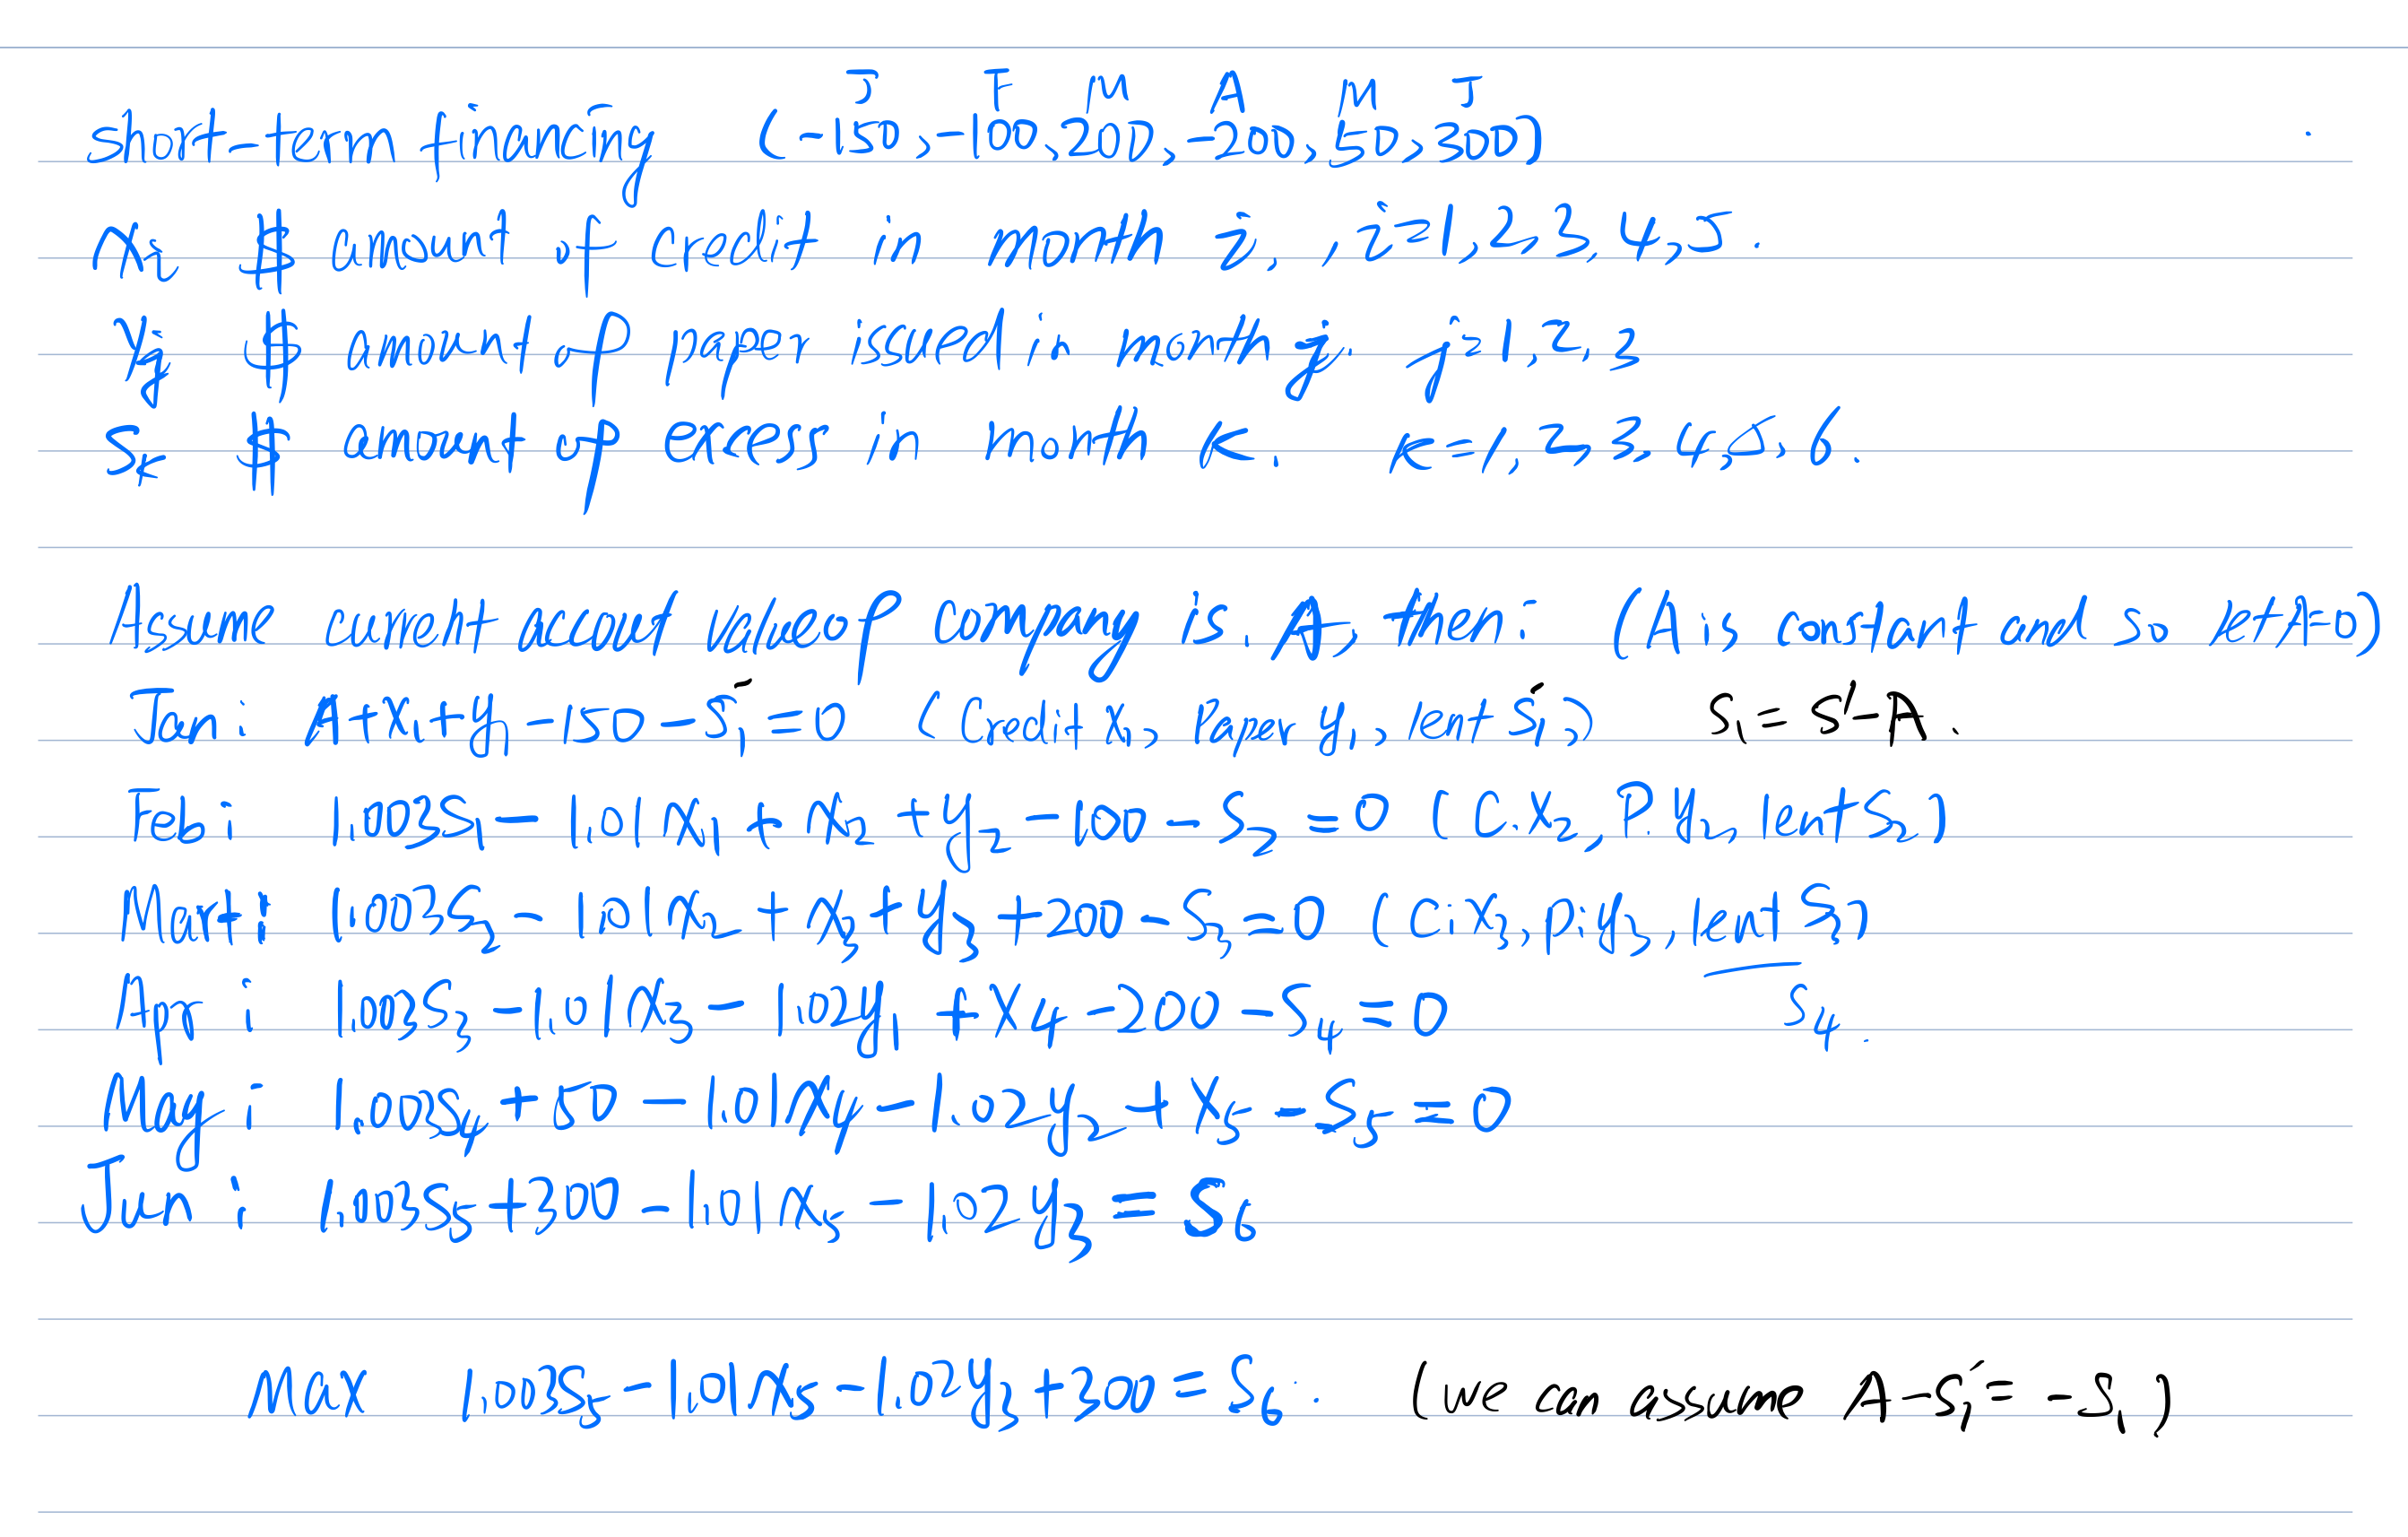 J F M A M J
short-term financing (-150, -100, 200, -200, 50, 300)
Xi $ amount of credit in month i, i=1,2,3,4,5.
Yj $ amount of paper issued in month j. j=1,2,3
Sk $ amount of excess in month k. k=1,2,3,4,5,6.
Assume current account value of company is A, then: (A is constant and so let A=0)
Jan: A+X1+y1-150-S1'=0 (Credit X1, Paper y1, lent S1') S1=S'-A.
Feb: 1.003S1-1.01X1+X2+y2-100-S2=0 (C.X2, P.y2, lent S2)
Mart: 1.003S2-1.01X2+X3+y3+200-S3=0 (C:X3, p:y3, lent S3)
Apr: 1.003S3-1.01X3-1.02y1+X4-200-S4=0 S4.
May: 1.003S4+50-1.01X4-1.02y2+X5-S5=0
Jun: 1.003S5+300-1.01X5-1.02y3=S6
Max 1.003S5-1.01X5-1.02y3+300=S6. (we can assume A-S1'=-S1)